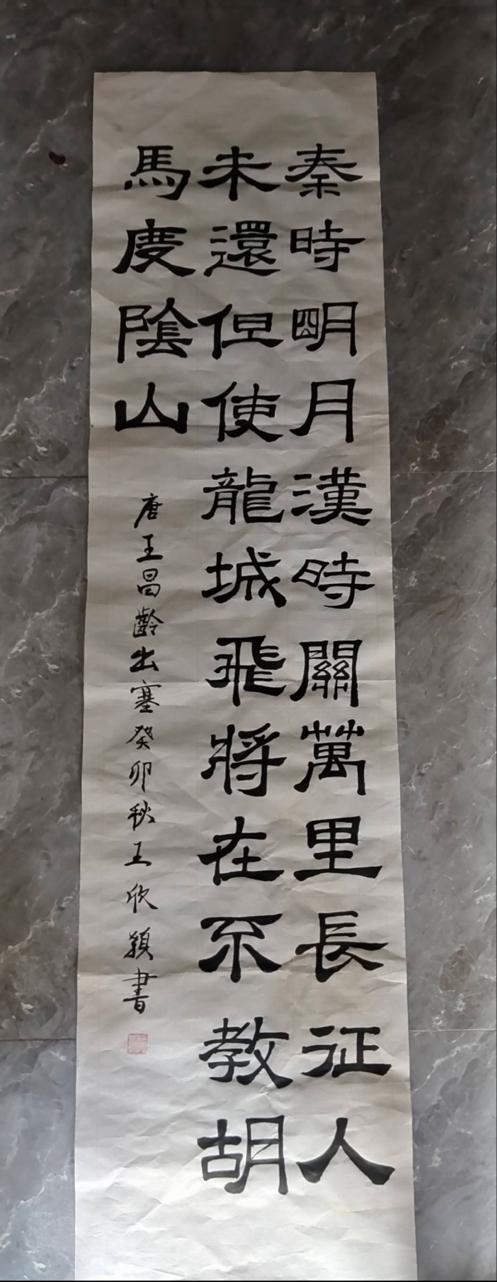 秦時明月漢時關萬里長征人
未還但使龍城飛將在不教胡
馬度陰山
唐王昌齡出塞癸卯秋王欣穎書